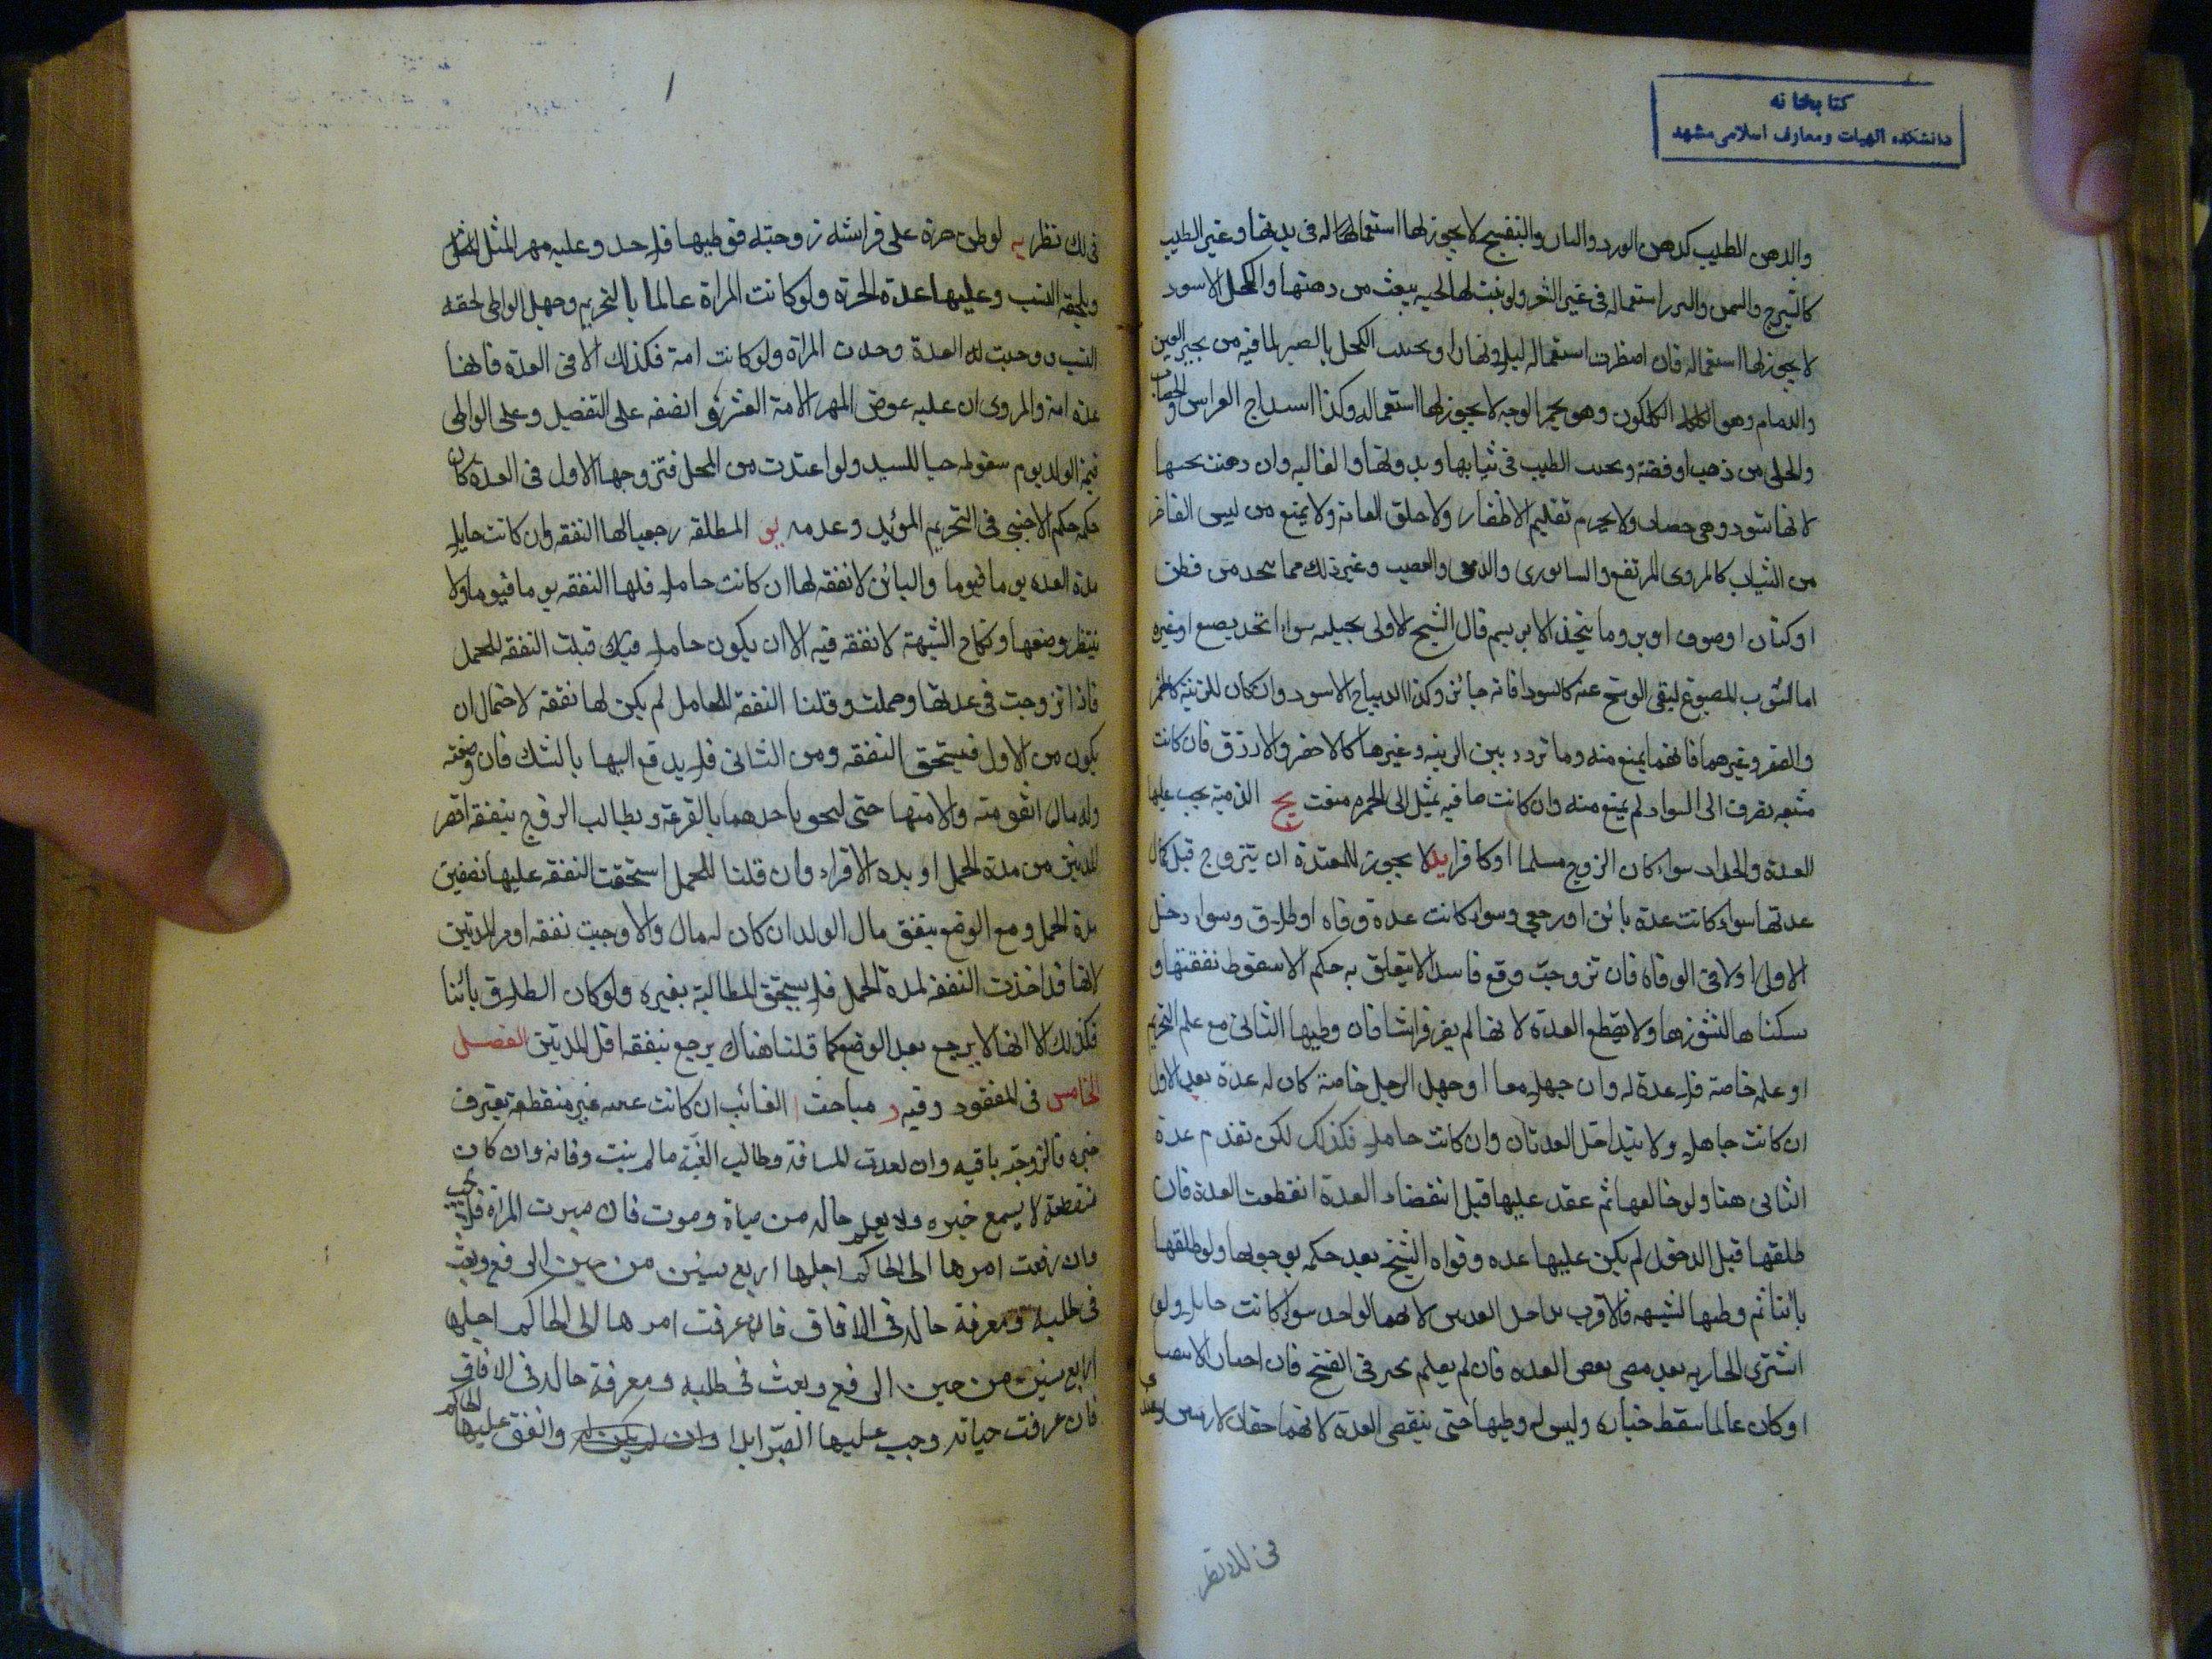 كتابخانه
دانشكده الهيات ومعارف اسلامى مشهد
والدهن الطيب كدهن الورد والبان والبنفسج لا يجوز لها استعماله فى بدنها وغير الطيب
كالشيرج والسمن والبزر استعماله فى غير الشعر ولو نبت لها لحيه يبعث من دهنها والكحل الاسود
لا يجوز لها استعماله فان اضطرت استعماله ليلا ونهارا ويجتنب الكحل بالصبر لما فيه من العين
والدمام وهو الكلكون وهو يحمر الوجه لا يجوز لها استعماله وكذا اسبداج العرايس والخضاب
والحلى من ذهب او فضة ويجتنب الطيب فى ثيابها وبدنها والغاليه وان دهنت بحبها
لانها تسود وهى خضاب ولا يحرم تقليم الاظفار ولا حلق العانة ولا يمنع من لبس الفاخر
من الثياب كالمروى المرتفع والسابورى والدبيقى والقصب وغير ذلك مما يتخذ من قطن
او كتان او صوف او وبر وما يتخذ الابريسم قال الشيخ الاولى تجنبه سواء اتخذ بصبغ او غيره
اما الثوب المصبوغ ليقى الوسخ عنه كالسواد فانه جائز وكذا الديباج الاسود وان كان للزينة كالحمر
والصفر وغيرهما فانهما يمنع منه وما تردد بين الزينه وغيرها كالاخضر والازرق فان كانت
مشبعه تضرب الى السواد لم يمنع منه وان كانت صافيه تميل الى الحمره منعت يج الذمية يجب عليها
العدة والحداد سواء كان الزوج مسلما او كافرا يد لا يجوز للمعتدة ان يتزوج قبل كمال
عدتها سواء كانت عدة بائن او رجعى وسواء كانت عدة وفاه او طلاق وسواء دخل
الاول او لا فى الوفاه فان تزوجت وقع فاسدا لا يتعلق به حكم الا سقوط نفقتها و
سكناها لنشوزها ولا يقطع العدة لانها لم يفر فراشا فان وطيها الثانى مع علم التحريم
او علمه خاصة فلا عدة له وان جهلا معا او جهل الرجل خاصة كان له عدة بعد الاول
ان كانت جاهلا ولا يتداخل العدتان وان كانت حاملا فكذلك لكن تقدم عدة
الثانى هنا ولو خالعها ثم عقد عليها قبل انقضاء العدة انقطعت العدة فان
طلقها قبل الدخول لم يكن عليها عده وقواه الشيخ بعد حكمه بوجوبها ولو طلقها
بائنا ثم وطيها لشبهه فالاقرب تداخل العدتين لانهما لواحد سواء كانت حايلا ولو
اشترى الجاريه بعد مضى بعض العده فان لم يعلم تخير فى الفسخ فان اختار الامضاء
او كان عالما سقط خياره وليس له وطيها حتى ينقضى العدة لانهما حقان لادميين
فى ذلك نظر
فى ذلك نظر يه لو وطئ حرة على فراشه زوجته فوطيها فلا حد وعليه مهر المثل
ويلحقه النسب وعليها عدة الحرة ولو كانت المراة عالما بالتحريم وجهل الواطى لحقه
النسب ووجبت له العدة وحدت المراة ولو كانت امة فكذلك الا فى العدة فانها
عدة امة والمروى ان عليه عوض المهر لامة العشر او نصفه على التفصيل وعلى الواطى
قيمة الولد يوم سقوطه حيا للسيد ولو اعتدت من المحل فتزوجها الاول فى العدة كان
حكمه حكم الاجنبى فى التحريم المؤبد وعدمه يو المطلقه رجعيا لها النفقه وان كانت حايلا
مدة العده يوما فيوما والبائن لا نفقه لها ان كانت حاملا فلها النفقه يوما فيوما ولا
ينتظر وضعها ونكاح الشبهة لا نفقه فيه الا ان يكون حاملا قبلت النفقه للحمل
فاذا تزوجت فى عدتها وحملت وقلنا النفقه للحامل لم يكن لها نفقه لاحتمال ان
يكون من الاول فيستحق النفقه ومن الثانى فلا يدفع اليها بالشك فان وضعته
وله مال انفق منه والا منها حتى لحق باحدهما بالقرعة ويطالب الزوج بنفقه اقصر
المدتين من مدة الحمل او مده الاقراء وان قلنا للحمل استحقت النفقه عليها نصفين
مدة الحمل ومع الوضع ينفق مال الولد ان كان له مال والا وجبت نفقه اوفر المدتين
لانها قد اخذت النفقه لمدة الحمل فلا يستحق المطالبة بغيره ولو كان الطلاق بائنا
فكذلك الا انها لا يرجع بعد الوضع كما قلنا هناك يرجع بنفقه اقل المدتين الفصل
الخامس فى المفقود وفيه د مباحث ا الغائب ان كانت غيبته غير منقطعة يعرف
خبره فالزوجة باقيه وان بعدت المسافة وطالت الغيبة ما لم يثبت وفاته وان كان
منقطعة لا يسمع خبره ولا يعلم حاله من حياة وموت فان صبرت المراة فلا يجب
وان رفعت امرها الى الحاكم اجلها اربع سنين من حين الرفع وبعث
فى طلبه ومعرفة حاله فى الافاق فان عرفت امرها الى الحاكم اجلها
اربع سنين من حين الرفع وبعث فى طلبه ومعرفة حاله فى الافاق
فان عرفت حياته وجب عليها الصبر ابدا وان لم يكن له وانفق عليها الحاكم